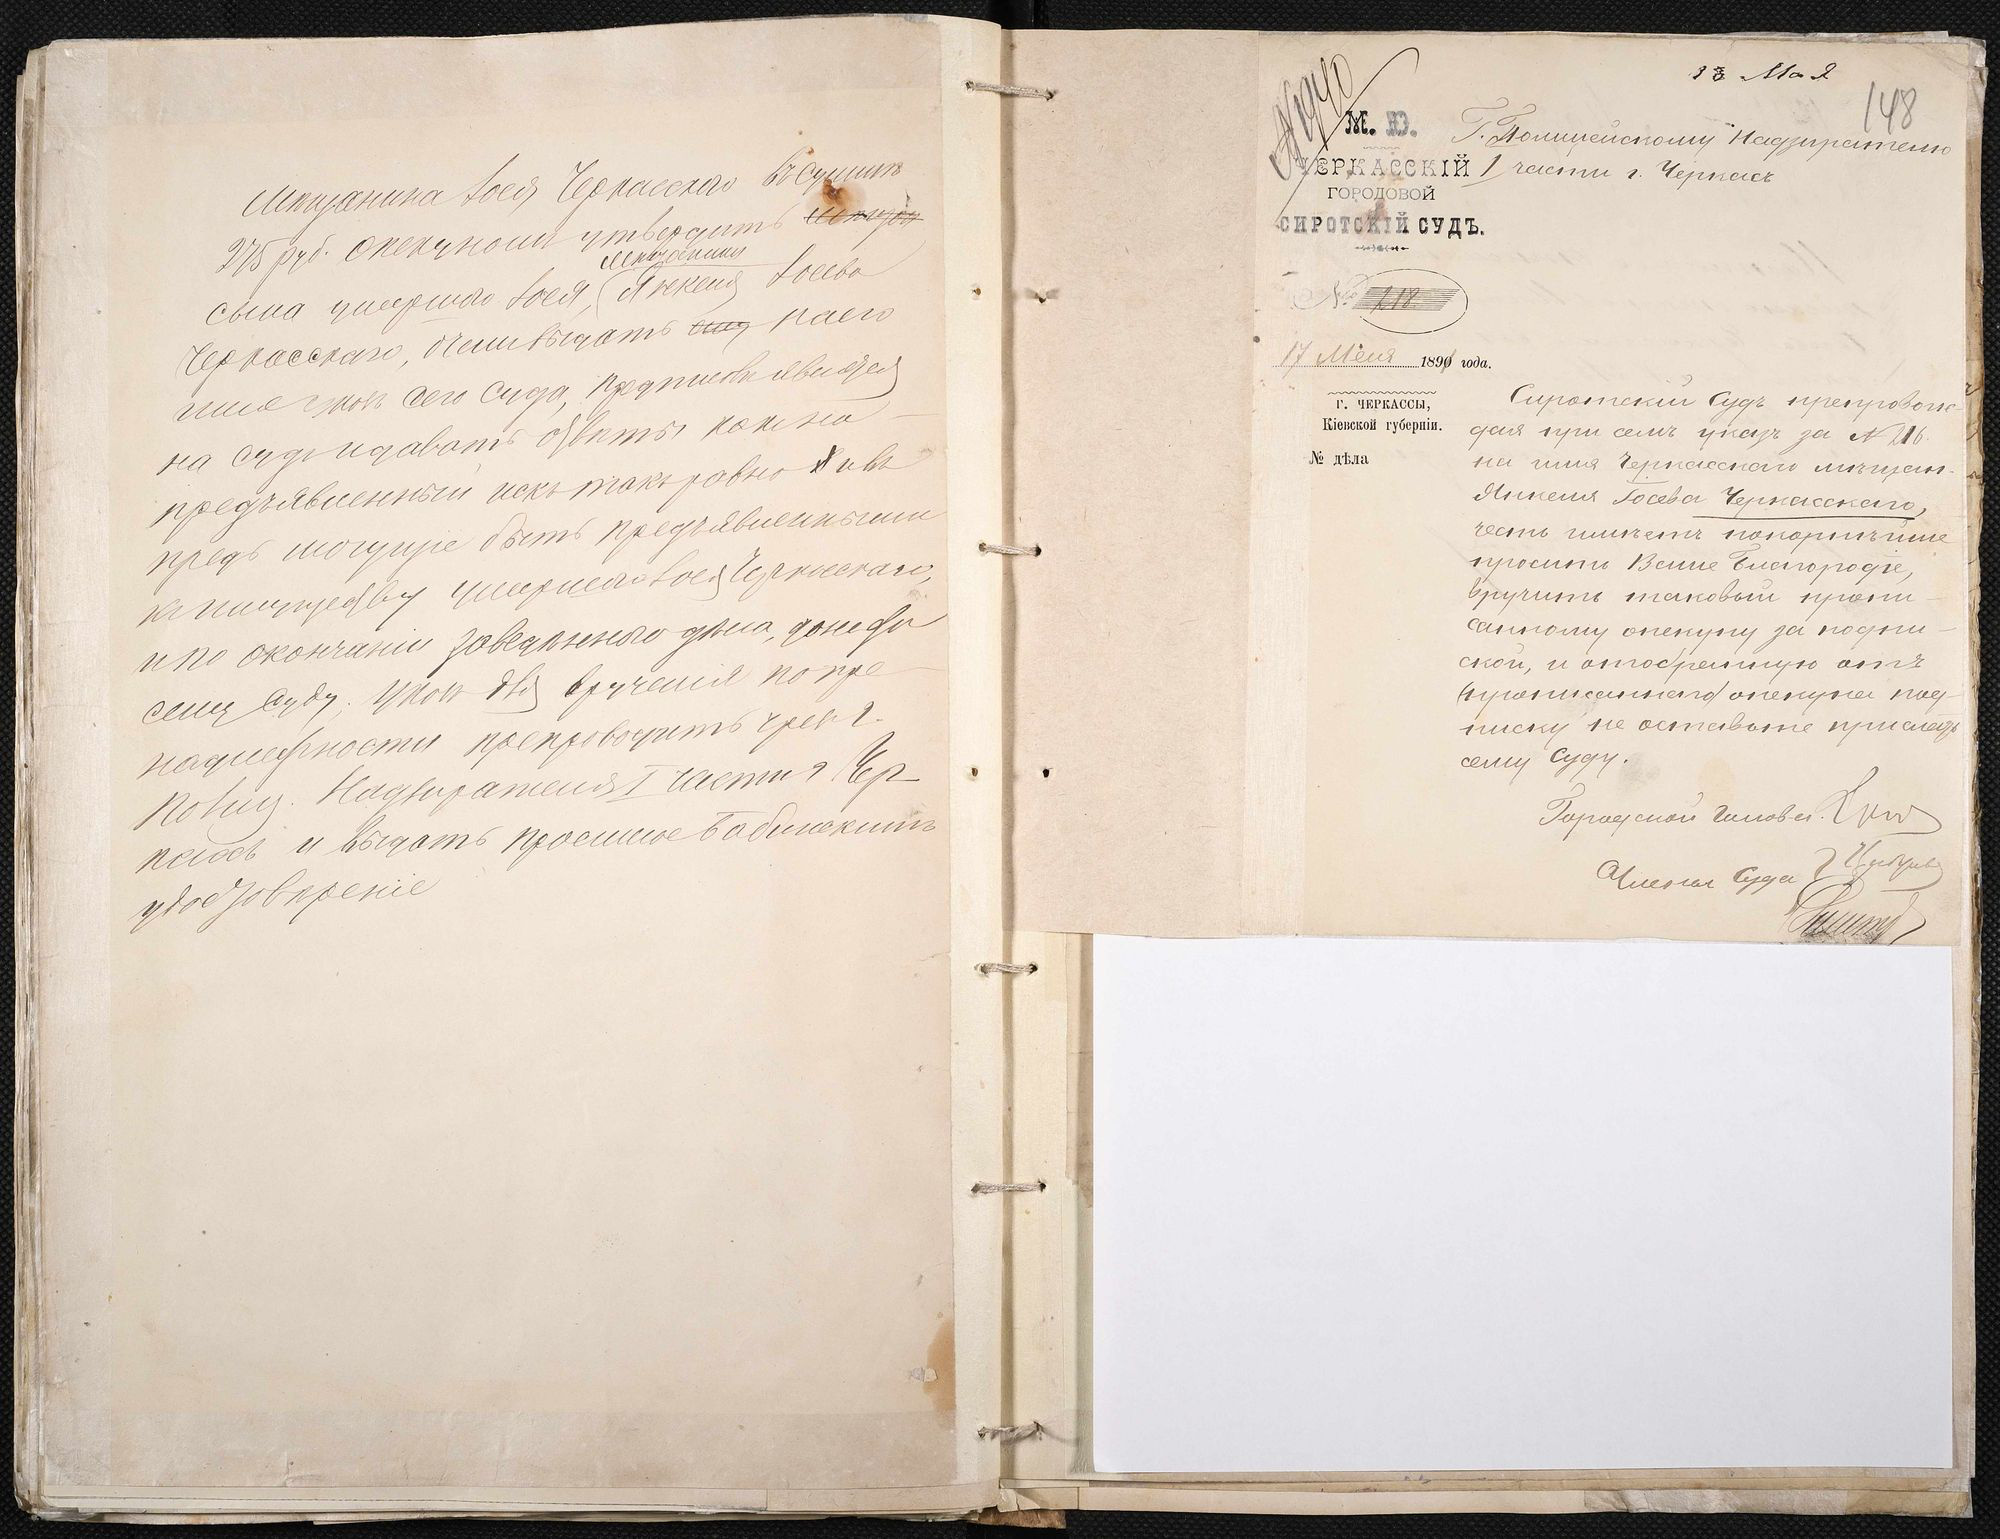 мѣщанина Іося Черкасскаго въ суммѣ
275 руб. опекуномъ утвердить
мѣщанина
сына умершаго Іося, Янкеля Іосева
Черкасскаго, о чемъ выдать на его
имя указъ сего Суда, предписавъ явиться
на судъ и давать отвѣты какъ на
предъявленный искъ такъ равно и въ
предь могущіе быть предъявленными
къ имуществу умершаго Іося Черкасскаго,
и по окончаніи заведеннаго дѣла, донести
сему Суду; указъ для врученія по при
надлежности препроводить чрезъ г.
Полиц. Надзирателя I части г. Чер
касъ и выдать просимое Бабинскимъ
удостовѣреніе
Мая
148
М. Ю.
ЧЕРКАССКІЙ
ГОРОДОВОЙ
СИРОТСКІЙ СУДЪ.
№ 218
17 Мая 1891 года.
г. ЧЕРКАССЫ,
Кіевской губерніи.
№ дѣла
Г. Полицейскому Надзирателю
I части г. Черкасъ
Сиротскій Судъ препровож-
дая при семъ указъ за № 216
на имя Черкасскаго мѣщан.
Янкеля Іосева Черкасскаго,
честь имѣетъ покорнѣйше
просить Ваше Благородіе,
вручить таковый пропи-
санному опекуну за подпи-
ской, и отобранную отъ
прописаннаго опекуна под-
писку не оставьте прислать
сему Суду.
Городской Голова
Члены Суда